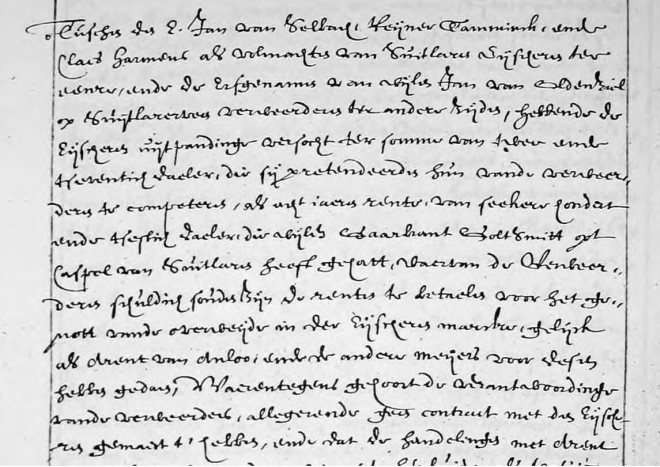 Tusschen den E. Jan van Selbach, Reijner Camminck, ende
Claes Harmens als volmachten van Suitlaren Eijscheren ter
eenre, ende de Erfgenamen van wijlen Jan van Oldenziel
op Suijtlarerveen verweerderen ter andere zijden, hebbende de
Eijscheren uijtpandinge versocht ter somme van twee ende
tseventich daeler, die sij pretendeerden hun vande verweer„
deren te competeren, als acht iaeren rente, van seekere hondert
ende tsestich daeler, die wijlen Goltsmitt opt
Caspel van Suitlaren heeft gehatt, waervan de Verweer„
deren schuldich souden zijn de renten te betaelen voor het ge„
nott vande overweijde in der Eijscheren marcke, gelijck
als Arent van Anloo, ende de andere meijers voor desen
hebben gedaen, Waerentegens gehoort de verantwoordinge
vande verweerders, allegerende geen contract met den Eijsche„
ren gemaect t' hebben, ende dat de handelinge met Arent